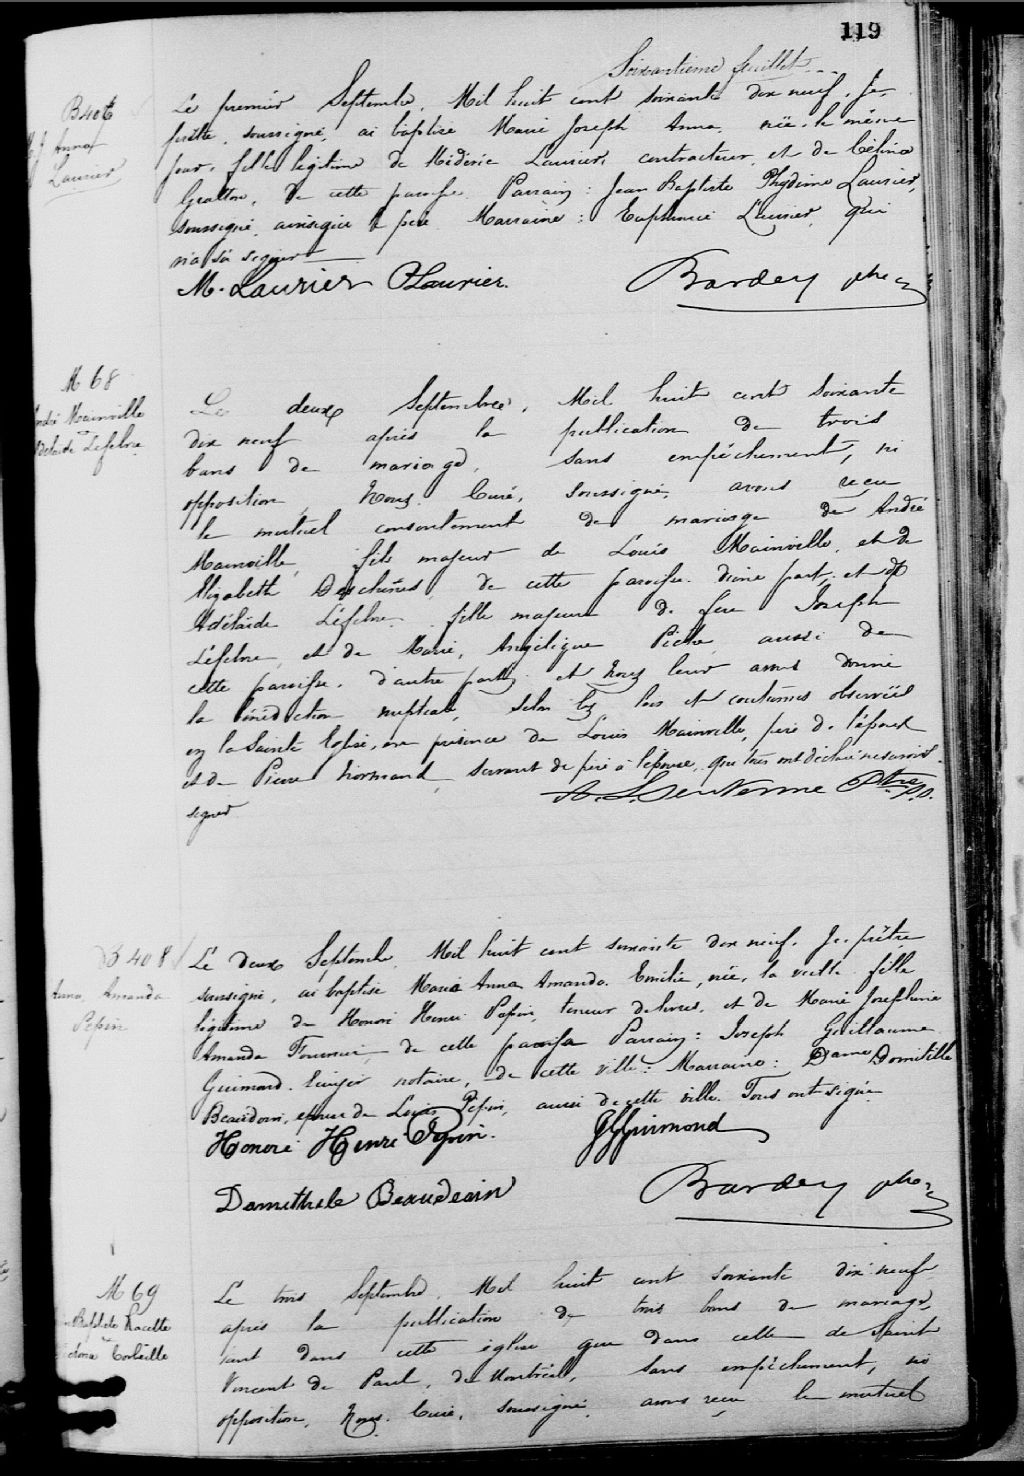 119
Soixantième feuillet
B 406
M. J. Anna
Laurier
Le premier Septembre, Mil huit cent soixante dix neuf, Je,
prêtre, soussigné, ai baptisé Marie Joseph Anna, née le même
jour, fille légitime de Médéric Laurier, contracteur, et de Célina
Gratton, de cette paroisse. Parrain : Jean Baptiste Phydime Laurier,
soussigné, ainsi que le père Marraine : Euphémie Laurier, qui
n'a su signer
M. Laurier P Laurier.
Bardey ptre
M 68
André Mainville
Adelaide Lefebre
Le deux Septembre, Mil huit cent soixante
dix neuf après la publication de trois
bans de mariage, sans empêchement, ni
opposition, Nous, Curé, soussigné, avons reçu
le mutuel consentement de mariage de André
Mainville, fils majeur de Louis Mainville, et de
Elizabeth Deschênes, de cette paroisse d'une part, et de
Adélaïde Léfebre, fille majeure de feu Joseph
Léfebre, et de Marie, Angélique Piché, aussi de
cette paroisse, d'autre part, et Nous leur avons donné
la bénédiction nuptiale, selon les lois et coutumes observées
en la Sainte Eglise, en présence de Louis Mainville, père de l'époux
et de Pierre Normand, servant de père à l'épouse, qui tous ont déclaré ne savoir
signer
A. L. Sentenne Ptre S.S.
B 408
Anna, Amanda
Pépin
Le deux Septembre, Mil huit cent soixante dix neuf, Je, prêtre
soussigné, ai baptisé Marie Anna Amanda Emilie, née, la veille fille
légitime de Honoré Henri Pépin, teneur de livres, et de Marie Joséphine
Amanda Fournier, de cette paroisse Parrain : Joseph Guillaume
Guimond, Ecuyer notaire, de cette ville : Marraine : Dame Domitille
Beaudoin, épouse de Louis Pépin, aussi de cette ville. Tous ont signé
Honoré Henri Pepin.
J G Guimond
Domithile Beaudoin
Bardey ptre
M 69
Baptiste Racette
Corbeille
Le trois Septembre, Mil huit cent soixante dix neuf
après la publication de trois bans de mariage,
tant dans cette église que dans celle de Saint
Vincent de Paul, de Montréal, sans empêchement, ni
opposition, Nous, Curé, soussigné, avons reçu le mutuel